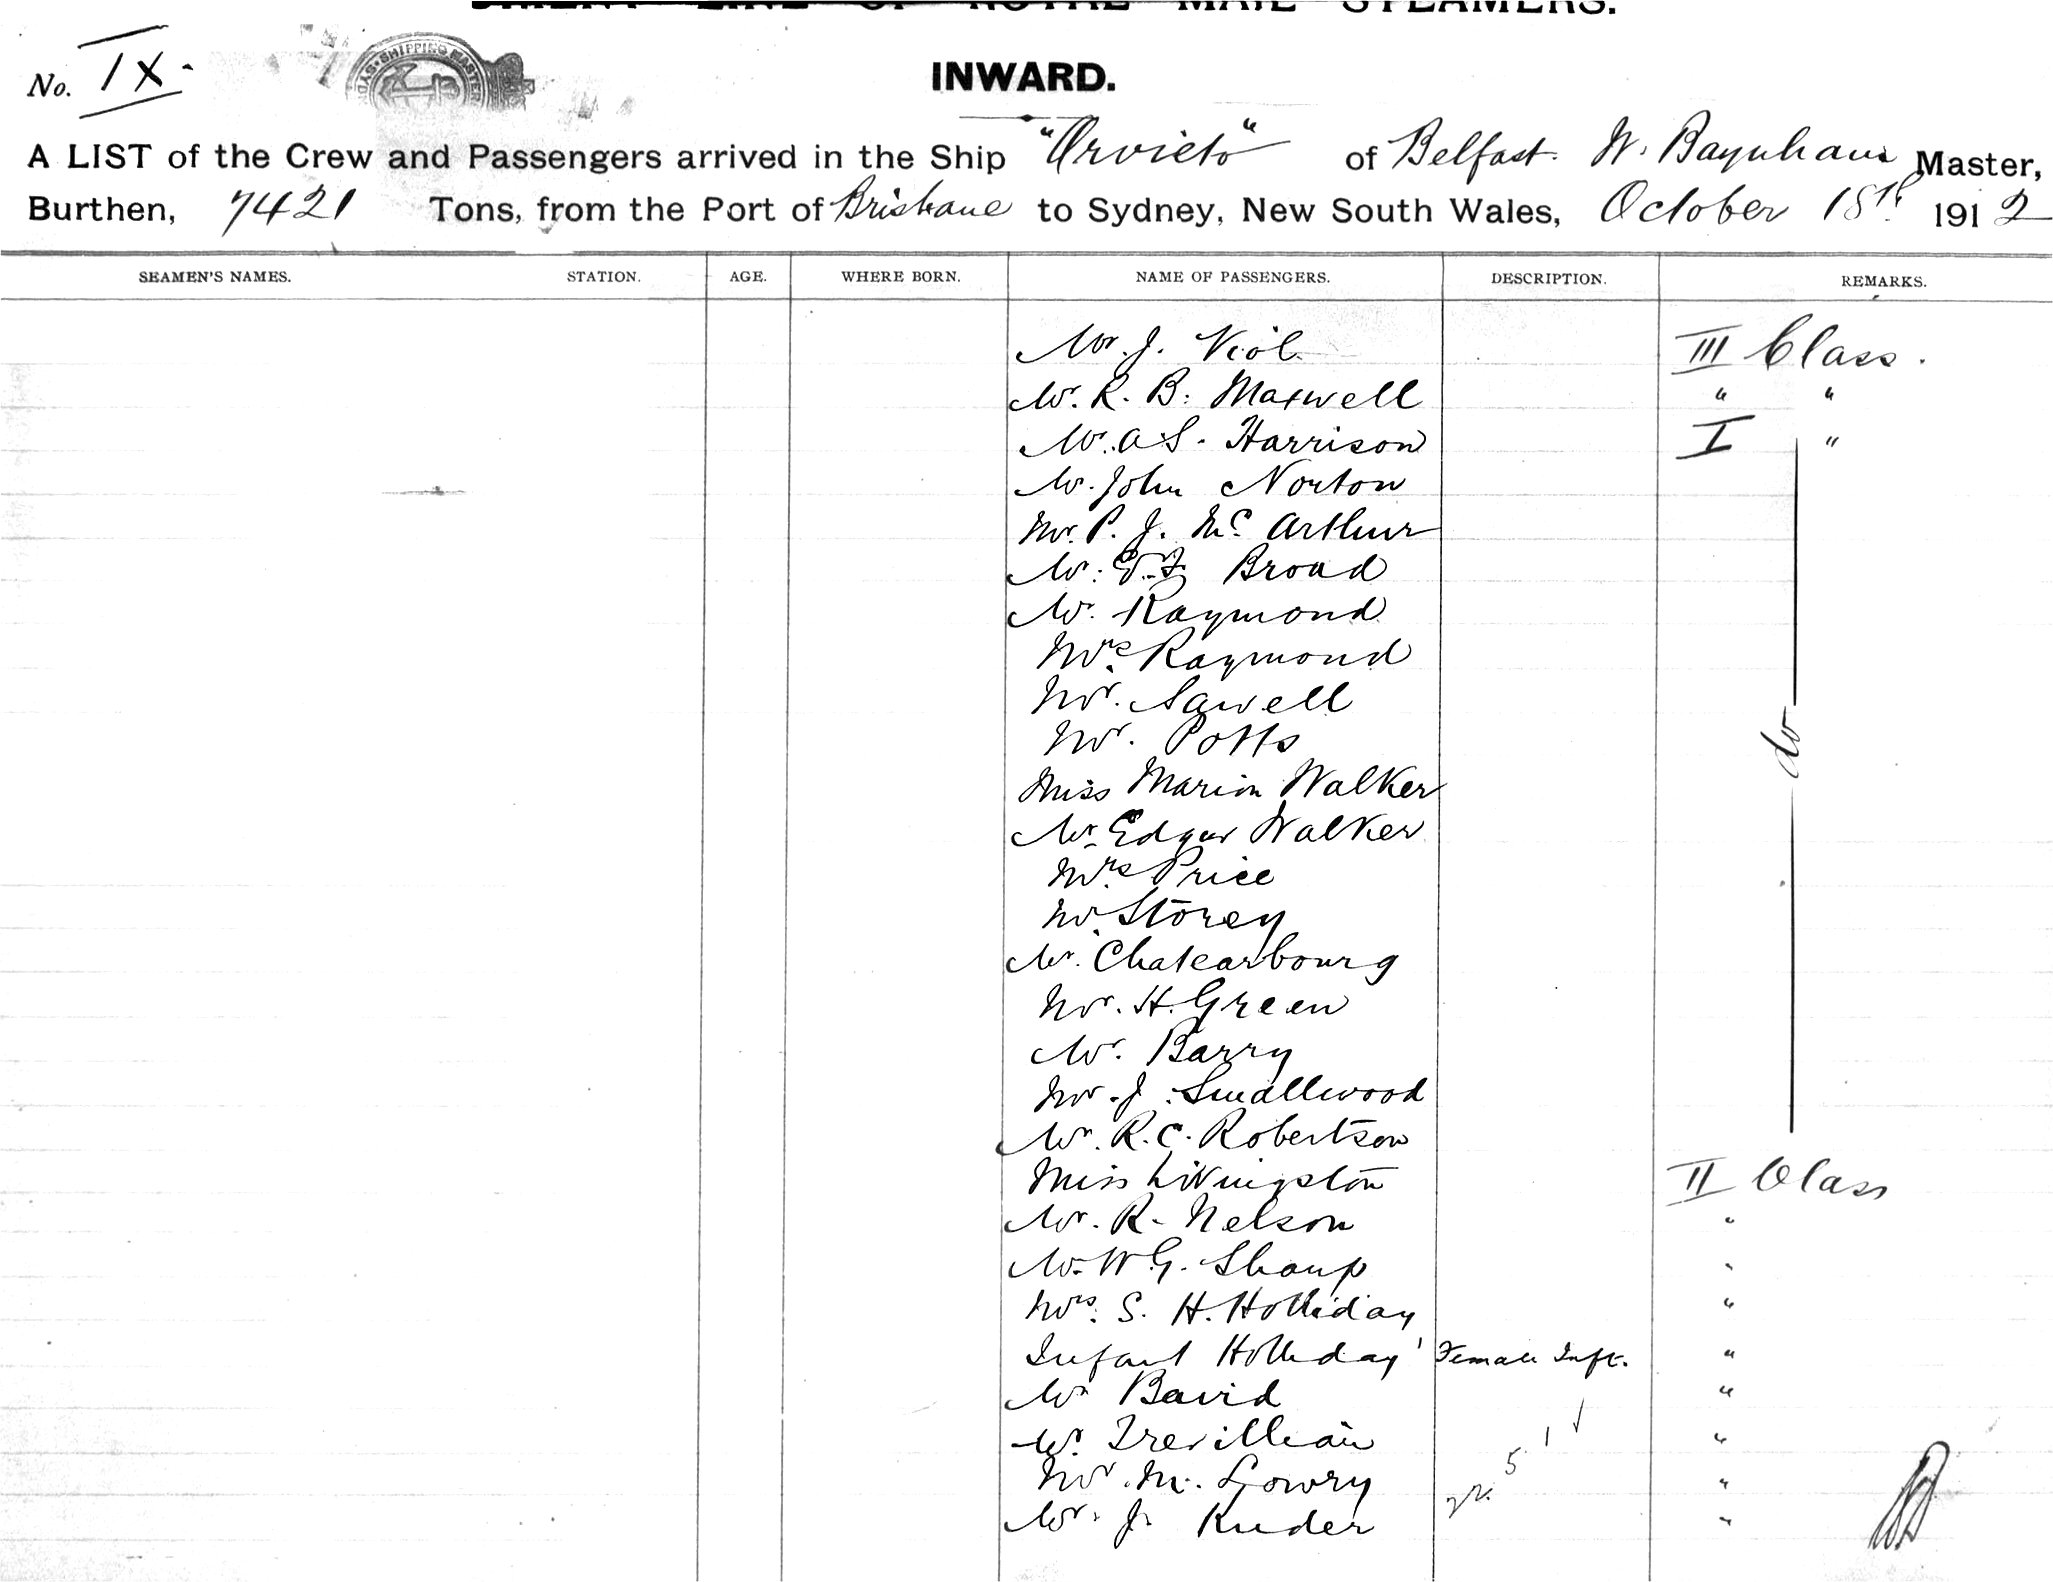 ORIENT LINE OF ROYAL MAIL STEAMERS.
No. IX.
SHIPPING MASTER
INWARD.
A LIST of the Crew and Passengers arrived in the Ship "Orvieto" of Belfast. W. Baynham Master,
Burthen, 7421 Tons, from the Port of Brisbane to Sydney, New South Wales, October 18th 1912
SEAMEN'S NAMES. STATION. AGE. WHERE BORN. NAME OF PASSENGERS. DESCRIPTION. REMARKS.
Mr. J. Viol III Class.
Mr. R. B. Maxwell " "
Mr. A S. Harrison I "
Mr. John Norton
Mr. P. J. Mc Arthur
Mr. Broad
Mr. Raymond
Mrs Raymond
Mr. Sawell
Mr. Potts do
Miss Marion Walker
Mr Edgar Walker
Mrs Price
Mr. Storey
Mr. Chatearbourg
Mr. H. Green
Mr. Barry
Mr. J. Smallwood
Mr. R. C. Robertson
Miss Livingston II Class
Mr. R. Nelson "
Mr. W. G. Sharp "
Mrs. S. H. Holliday "
Infant Holliday Female Inft. "
Mr Bavid "
Mr. Trevillian "
Mr. M. Lowry 5 "
Mr. J. Kuder "